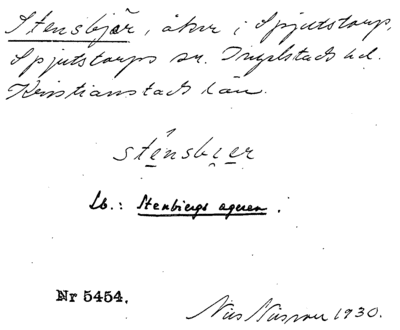 Stensbjär, åker i Spjutstorp,
Spjutstorps sn. Ingelstads hd.
Kristianstads län.
sténsbier
Lb.: Stenbiergs ageren.
Nr 5454.
Nils Nilsson 1930.